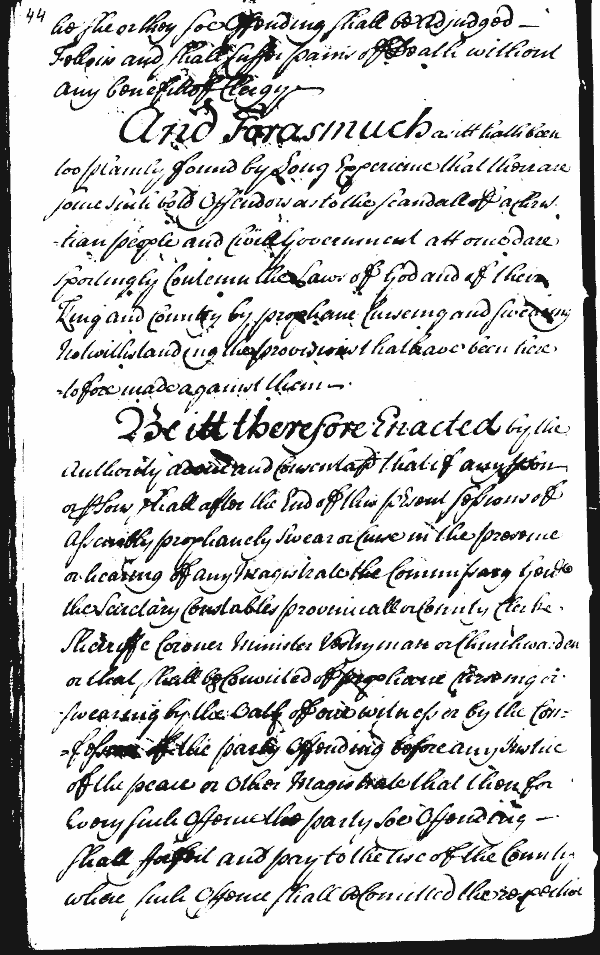 44
he she or they soe Offending shall be adjudged —
Fellons and shall suffer pains of Death without
any benefitt of Clergy —
And Forasmuch as itt hath been
too plainly found by Long Experience that there are
some such bold Offendors as to the scandall of a chris-
-tian people and Civill Government attome dare
sportingly Contemn the Laws of God and of their
King and Country by prophane Curseing and swearing
Notwithstanding the provisions that have been here
-tofore made against them —
Be itt therefore Enacted by the
Authority advice and consent afd that if any pson
or psons shall after the End of this psent sessions of
Assembly prophanely swear or Curse in the presence
or hearing of any Magistrate the Commissary Genll
the Secretary Constables provinciall or County Clerke
Sherriffe Coroner Minister Vestryman or Churchwarden
or that shall be Convicted of prophane Curseing or
swearing by the Oath of one witness or by the Con-
-fession of the party Offending before any Justice
of the peace or Other Magistrate that then for
Every such Offence the party soe Offending —
shall forfeit and pay to the use of the County
where such Offence shall be Comitted the respective